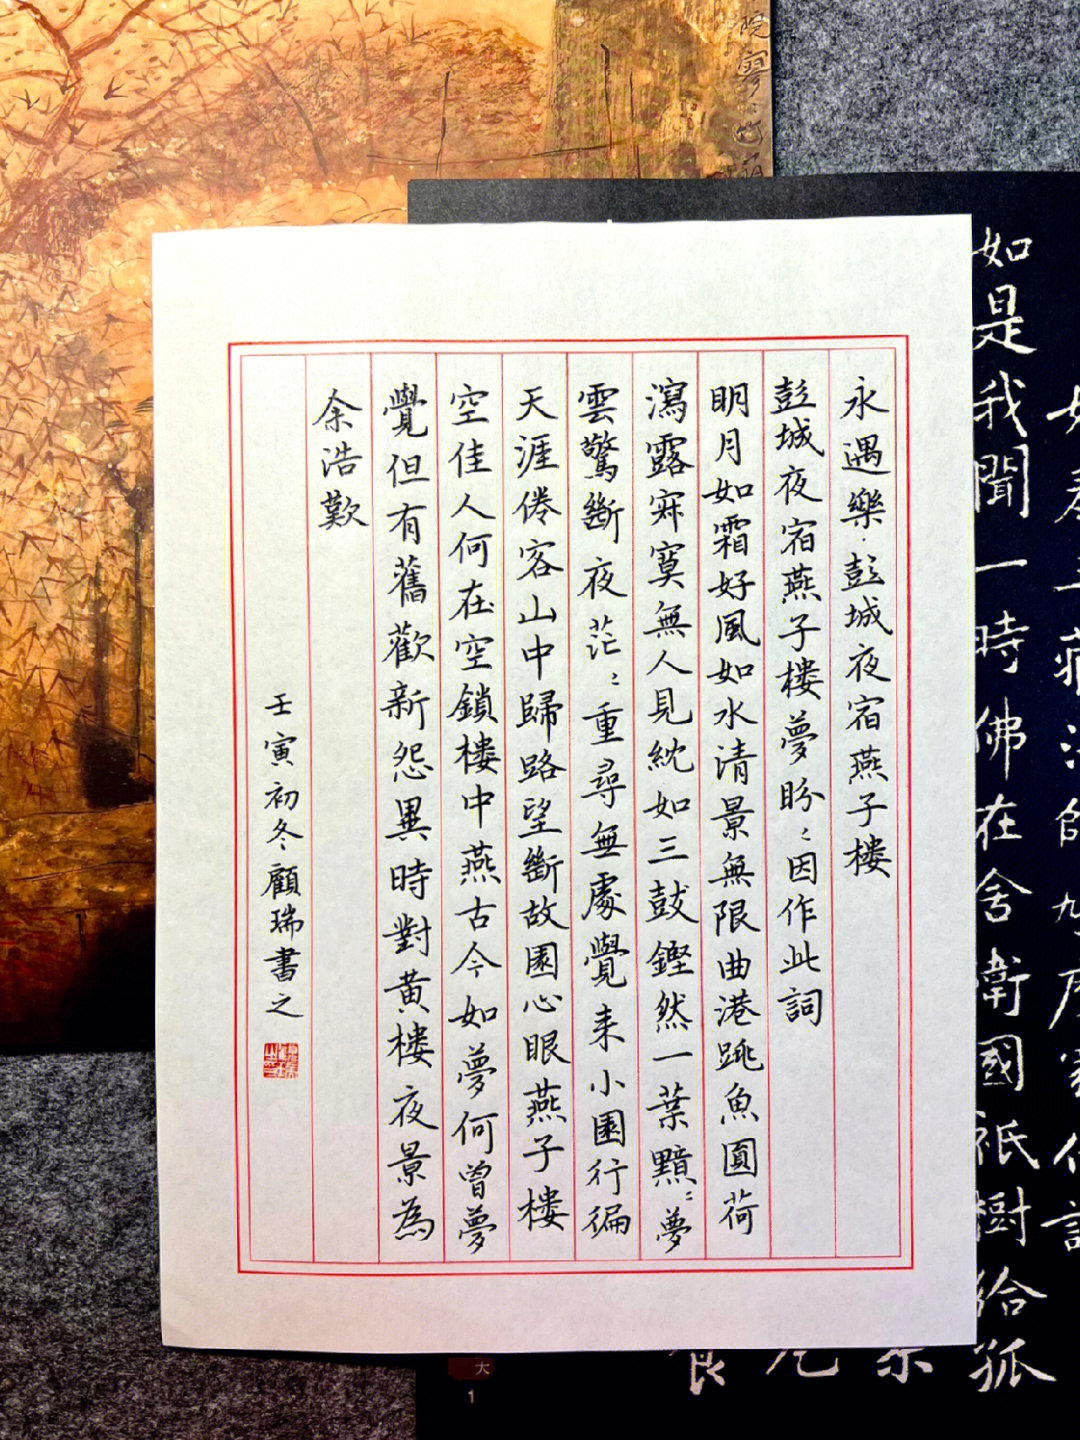 如是我聞一時佛在舍衛國祇樹給孤
永遇樂·彭城夜宿燕子樓
彭城夜宿燕子樓夢盼〻因作此詞
明月如霜好風如水清景無限曲港跳魚圓荷
瀉露寂寞無人見紞如三鼓鏗然一葉黯〻夢
雲驚斷夜茫〻重尋無處覺来小園行徧
天涯倦客山中歸路望斷故園心眼燕子樓
空佳人何在空鎖樓中燕古今如夢何曾夢
覺但有舊歡新怨異時對黄樓夜景為
余浩歎
壬寅初冬顧瑞書之
大
1